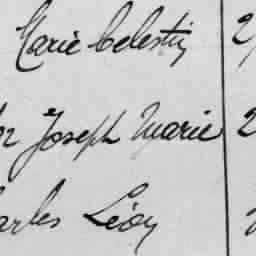 Marie Celestin 2
Joseph Marie 2
arles Léon